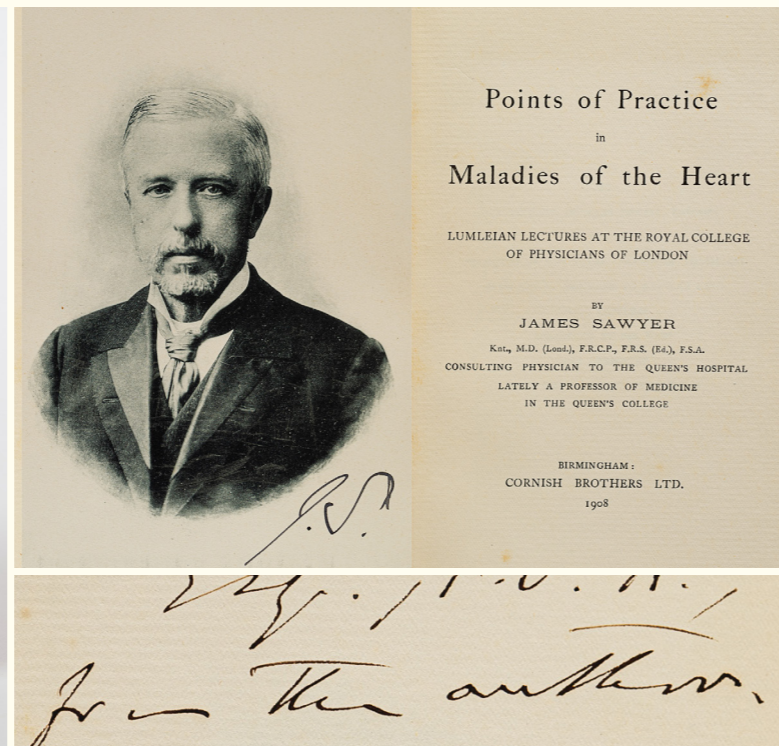 Points of Practice
in
Maladies of the Heart
LUMLEIAN LECTURES AT THE ROYAL COLLEGE
OF PHYSICIANS OF LONDON
BY
JAMES SAWYER
Knt., M.D. (Lond.), F.R.C.P., F.R.S. (Ed.), F.S.A.
CONSULTING PHYSICIAN TO THE QUEEN'S HOSPITAL
LATELY A PROFESSOR OF MEDICINE
IN THE QUEEN'S COLLEGE
BIRMINGHAM:
CORNISH BROTHERS LTD.
1908
J.S.
Esq.
from the author.